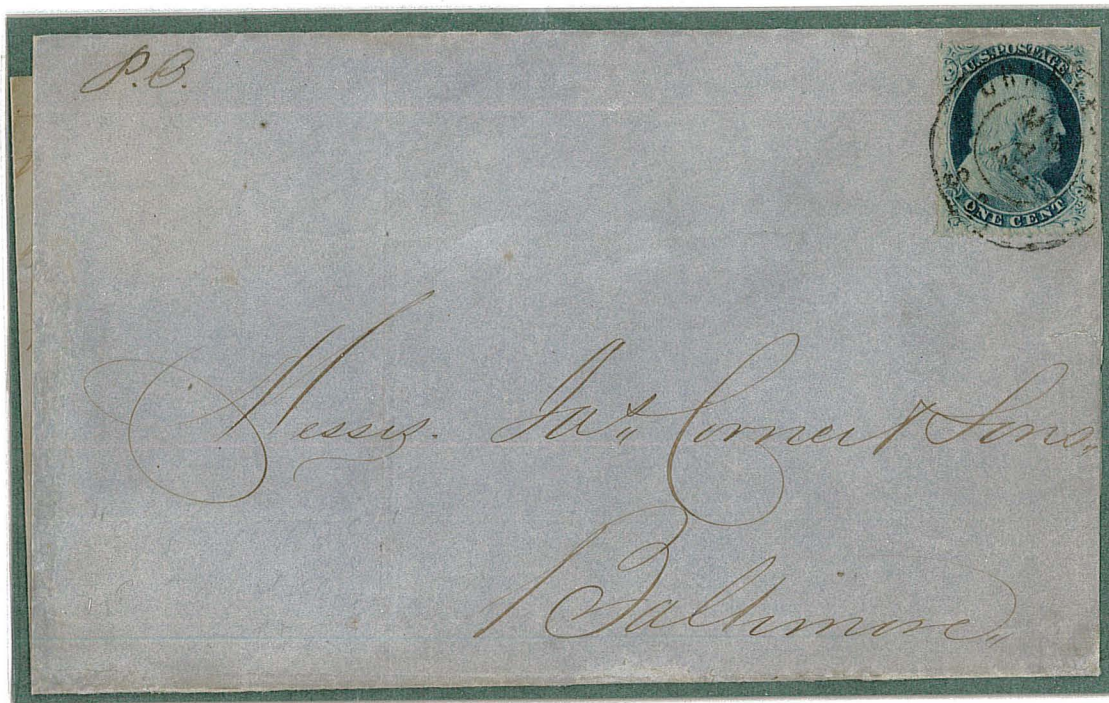 P.C.
U.S. POSTAGE
ONE CENT
Messrs. Jas,, Corner & Sons,,
Baltimore,,